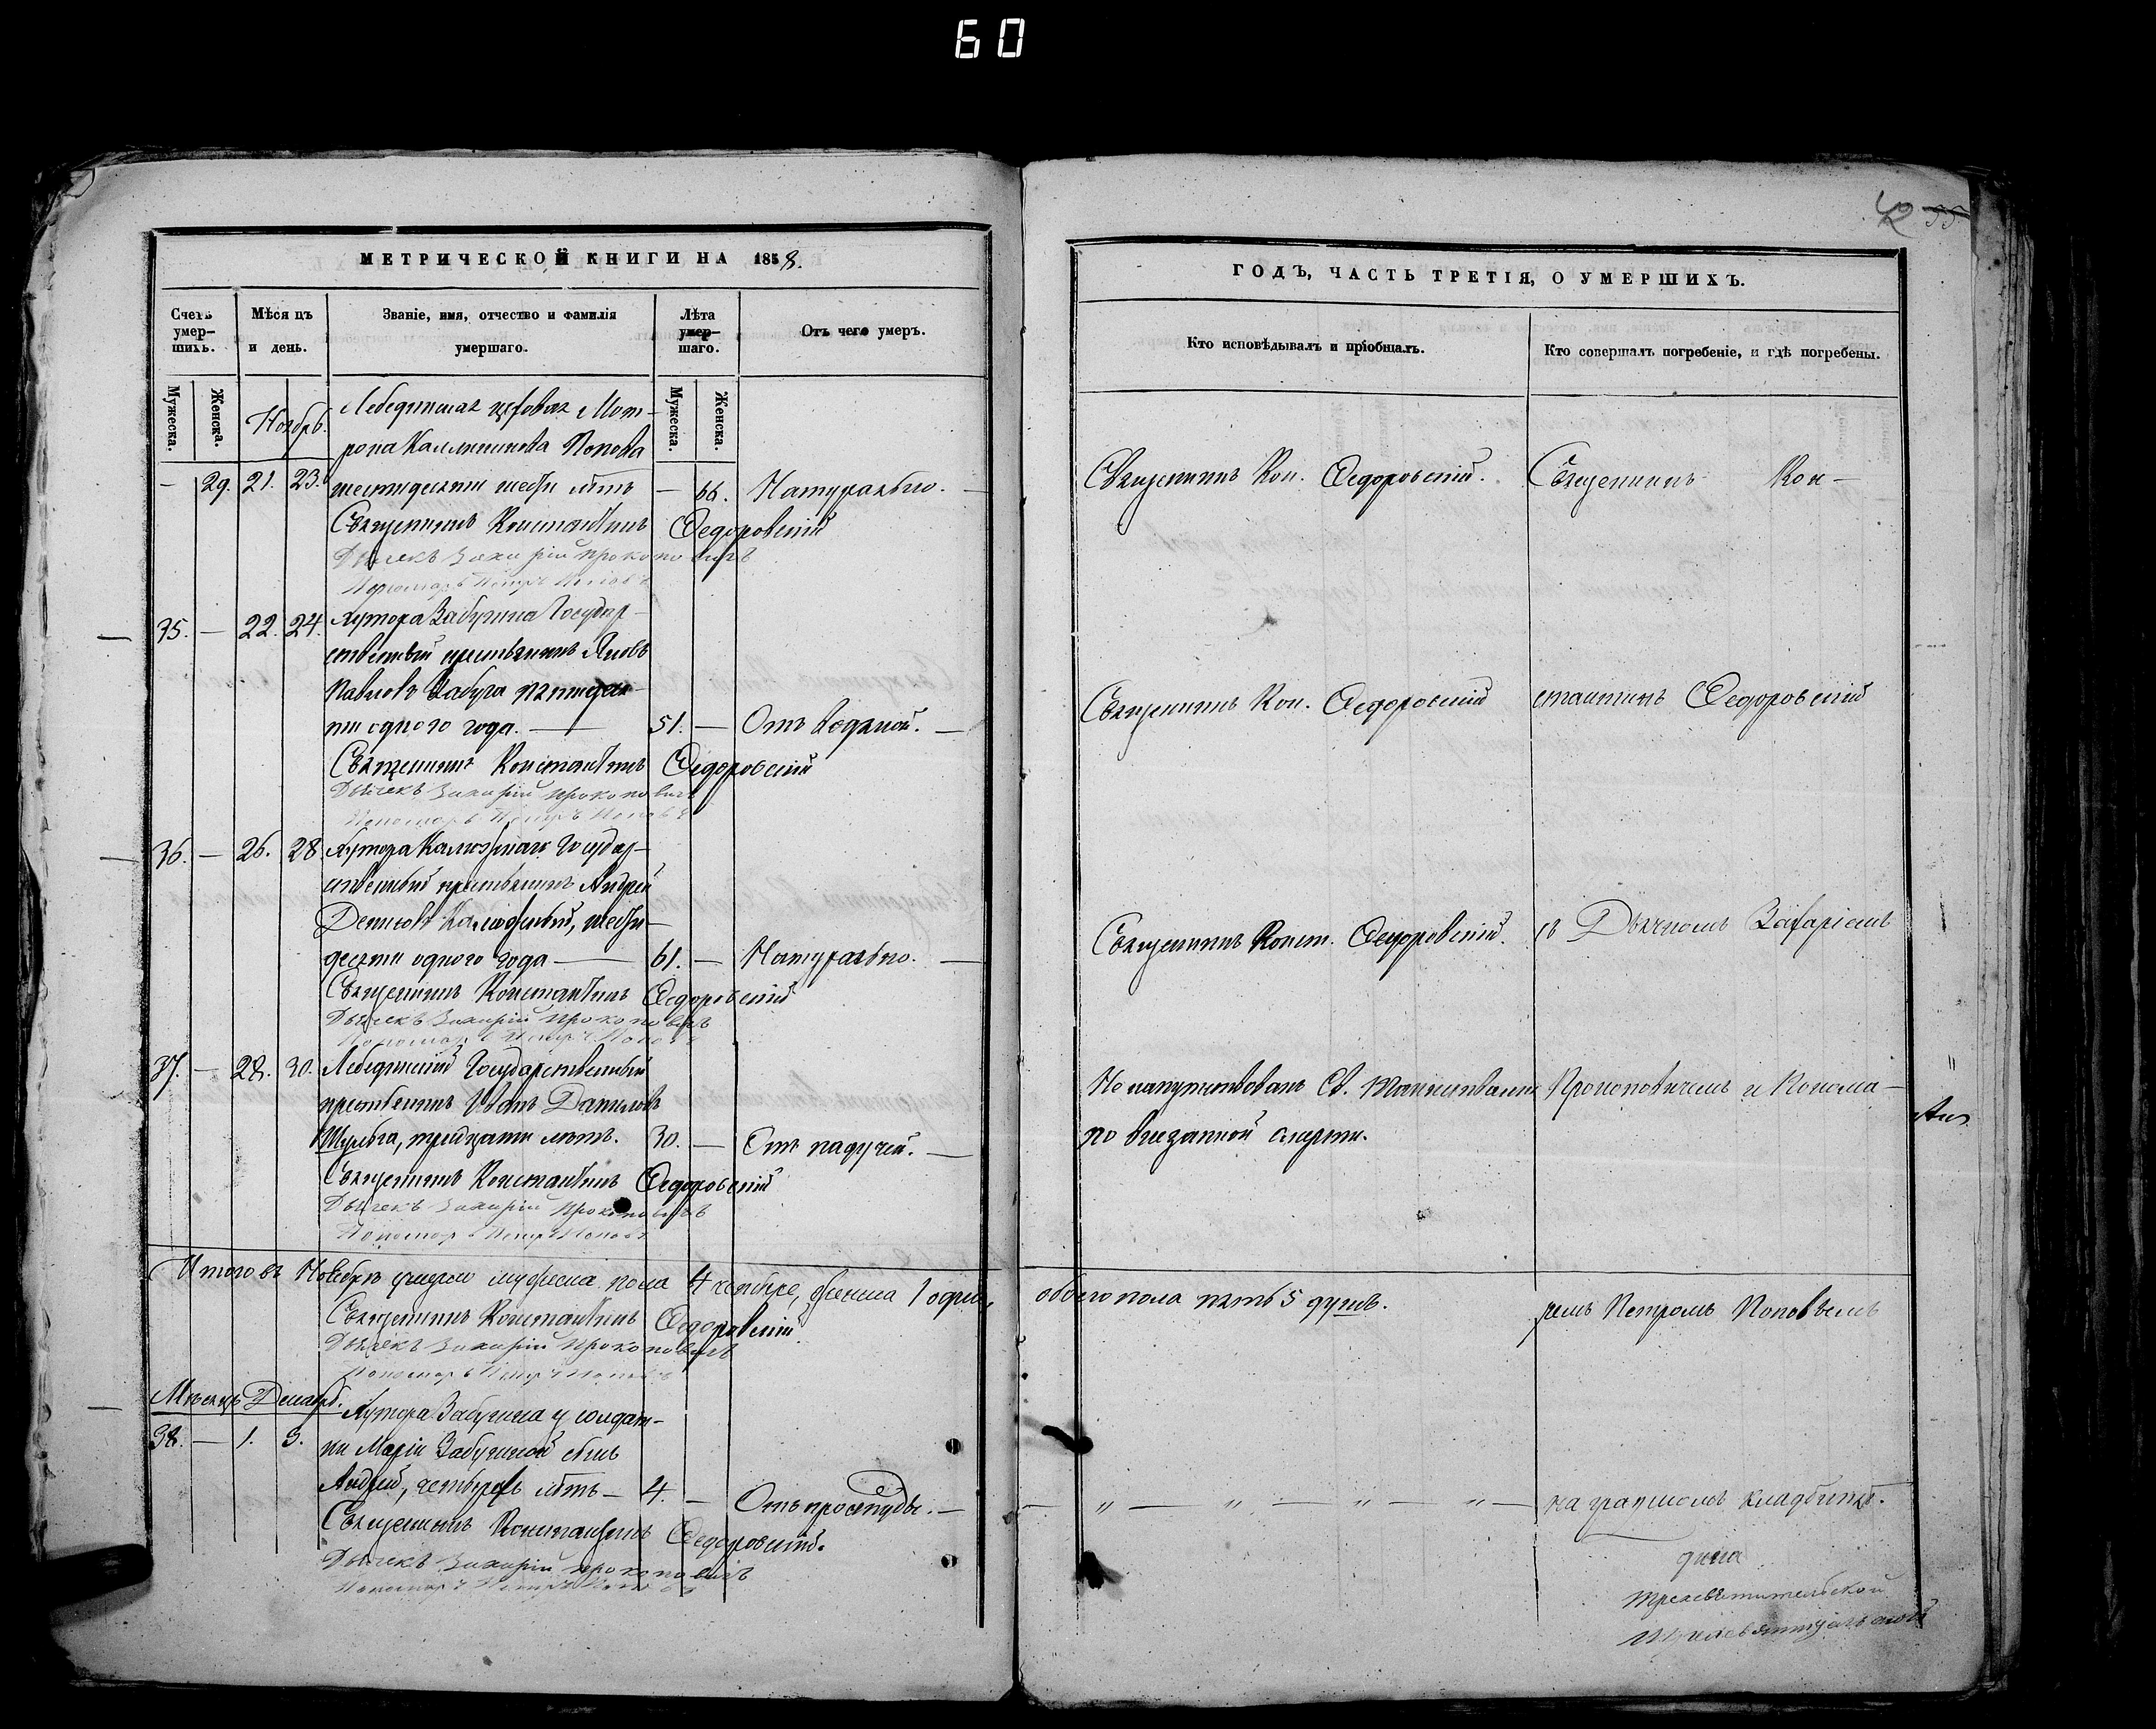 60
МЕТРИЧЕСКОЙ КНИГИ НА 1858.
Счетъ умер-шихъ.
Мѣсяцъ и день.
Званіе, имя, отчество и фамилія умершаго.
Лѣта умер-шаго.
Отъ чего умеръ.
Мужеска.
Женска.
Мужеска.
Женска.
Ноябрь.
Лебединская цеховая Мот-
рона Каллиникова Попова
— 29. 21. 23. шестидесяти шести лѣтъ — 66. Натурально. —
Священникъ Константинъ Ѳедоровскій
Дьячекъ Захарій Прокоповичъ
Пономарь Петръ Поповъ
35. — 22. 24. Хутора Забугина Государ-
ственный крестьянинъ Яковъ
Павловъ Забуга пятидеся-
ти одного года. — 51. — Отъ водяной. —
Священникъ Константинъ Ѳедоровскій
Дьячекъ Захарій Прокоповичъ
Пономарь Петръ Поповъ
36. — 26. 28 Хутора Калюжнаго Государ-
ственный крестьянинъ Андрей
Денисовъ Калюжный, шести-
десяти одного года — 61. — Натурально. —
Священникъ Константинъ Ѳедоровскій
Дьячекъ Захарій Прокоповичъ
Пономарь Петръ Поповъ
37. — 28. 30. Лебединскій Государственный
крестьянинъ Иванъ Даниловъ
Шульга, тридцати лѣтъ. 30. — Отъ падучей. —
Священникъ Константинъ Ѳедоровскій
Дьячекъ Захарій Прокоповичъ
Пономарь Петръ Поповъ
Итого въ Ноябрѣ умерло мужеска пола 4 четыре, женска 1 одна,
Священникъ Константинъ Ѳедоровскій
Дьячекъ Захарій Прокоповичъ
Пономарь Петръ Поповъ
Мѣсяцъ Декабрь.
Хутора Забугина у солдат-
38. — 1. 3. ки Маріи Забугиной сынъ
Андрей, четырехъ лѣтъ — 4. — Отъ простуды. —
Священникъ Константинъ Ѳедоровскій.
Дьячекъ Захарій Прокоповичъ
Пономарь Петръ Поповъ
55
ГОДЪ, ЧАСТЬ ТРЕТІЯ, О УМЕРШИХЪ.
Кто исповѣдывалъ и пріобщалъ.
Кто совершалъ погребеніе, и гдѣ погребены.
Священникъ Кон. Ѳедоровскій. Священникъ Кон—
Священникъ Кон. Ѳедоровскій стантинъ Ѳедоровскій
Священникъ Конст. Ѳедоровскій. съ Дьячкомъ Захаріемъ
Не напутствованъ Св. Таинствами Прокоповичемъ и Понома—
по внезапной смерти.
обоего пола пять 5 душъ. ремъ Петромъ Поповымъ
— „ — „ — „ — „ — на градскомъ кладбищѣ.
Трехсвятительской